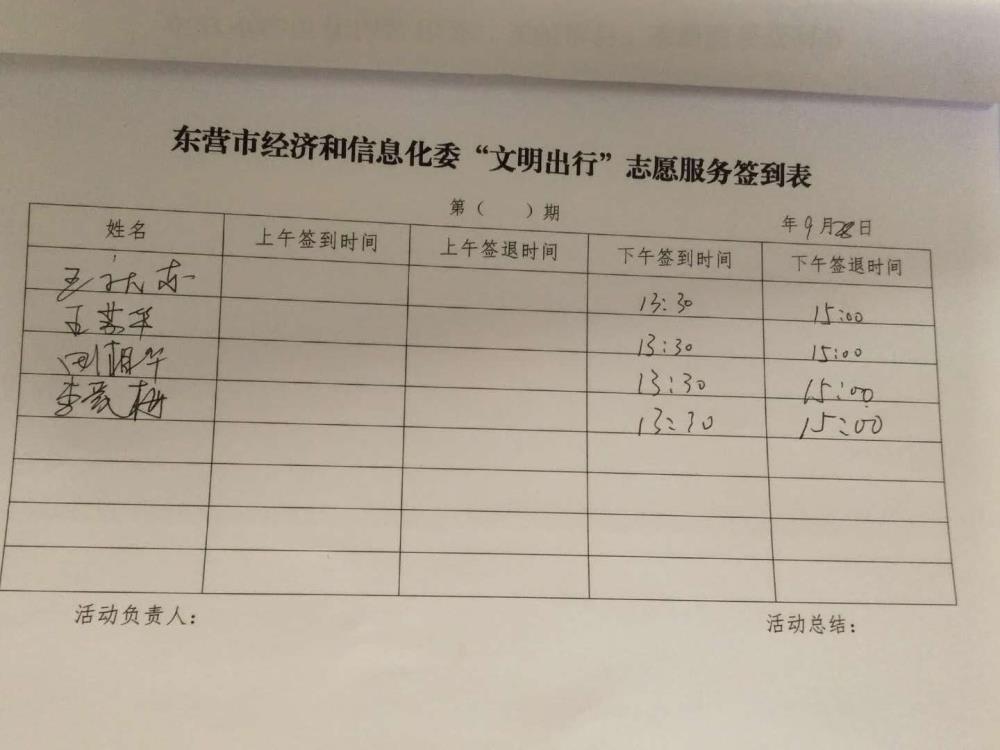 东营市经济和信息化委“文明出行”志愿服务签到表
第（ ）期
年9月28日
姓名 上午签到时间 上午签退时间 下午签到时间 下午签退时间
王 东 13:30 15:00
王 华 13:30 15:00
13:30 15:00
李 梅 13:30 15:00
活动负责人： 活动总结：